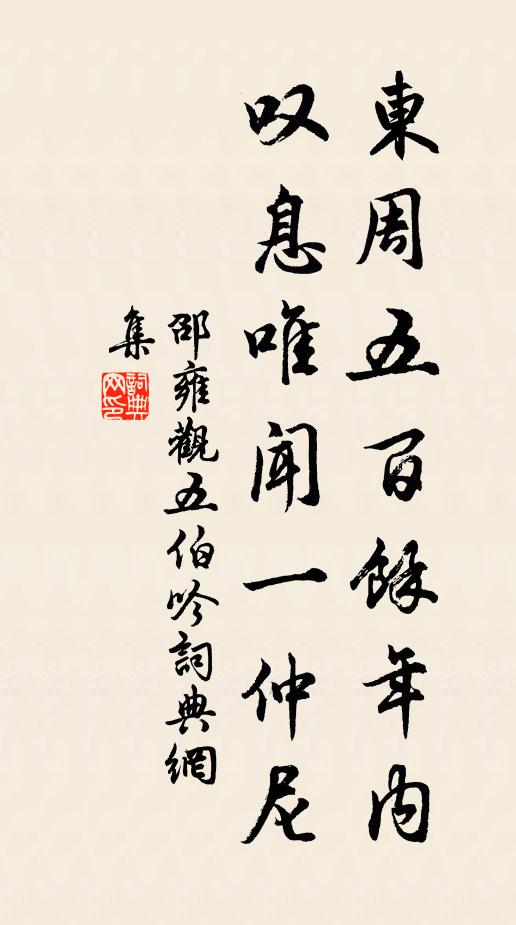 東周五百餘年內
叹息唯聞一仲尼
邵雍觀五伯吟詞典網
集
詞典網印